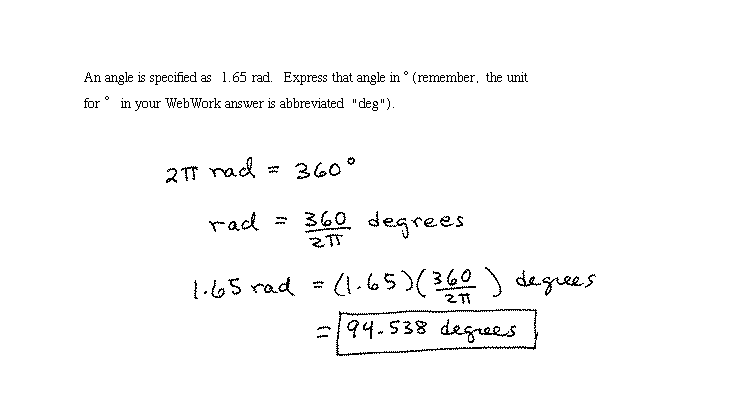 An angle is specified as 1.65 rad. Express that angle in ° (remember, the unit
for ° in your WebWork answer is abbreviated "deg").
2π rad = 360°
rad = 360/2π degrees
1.65 rad = (1.65)(360/2π) degrees
= 94.538 degrees